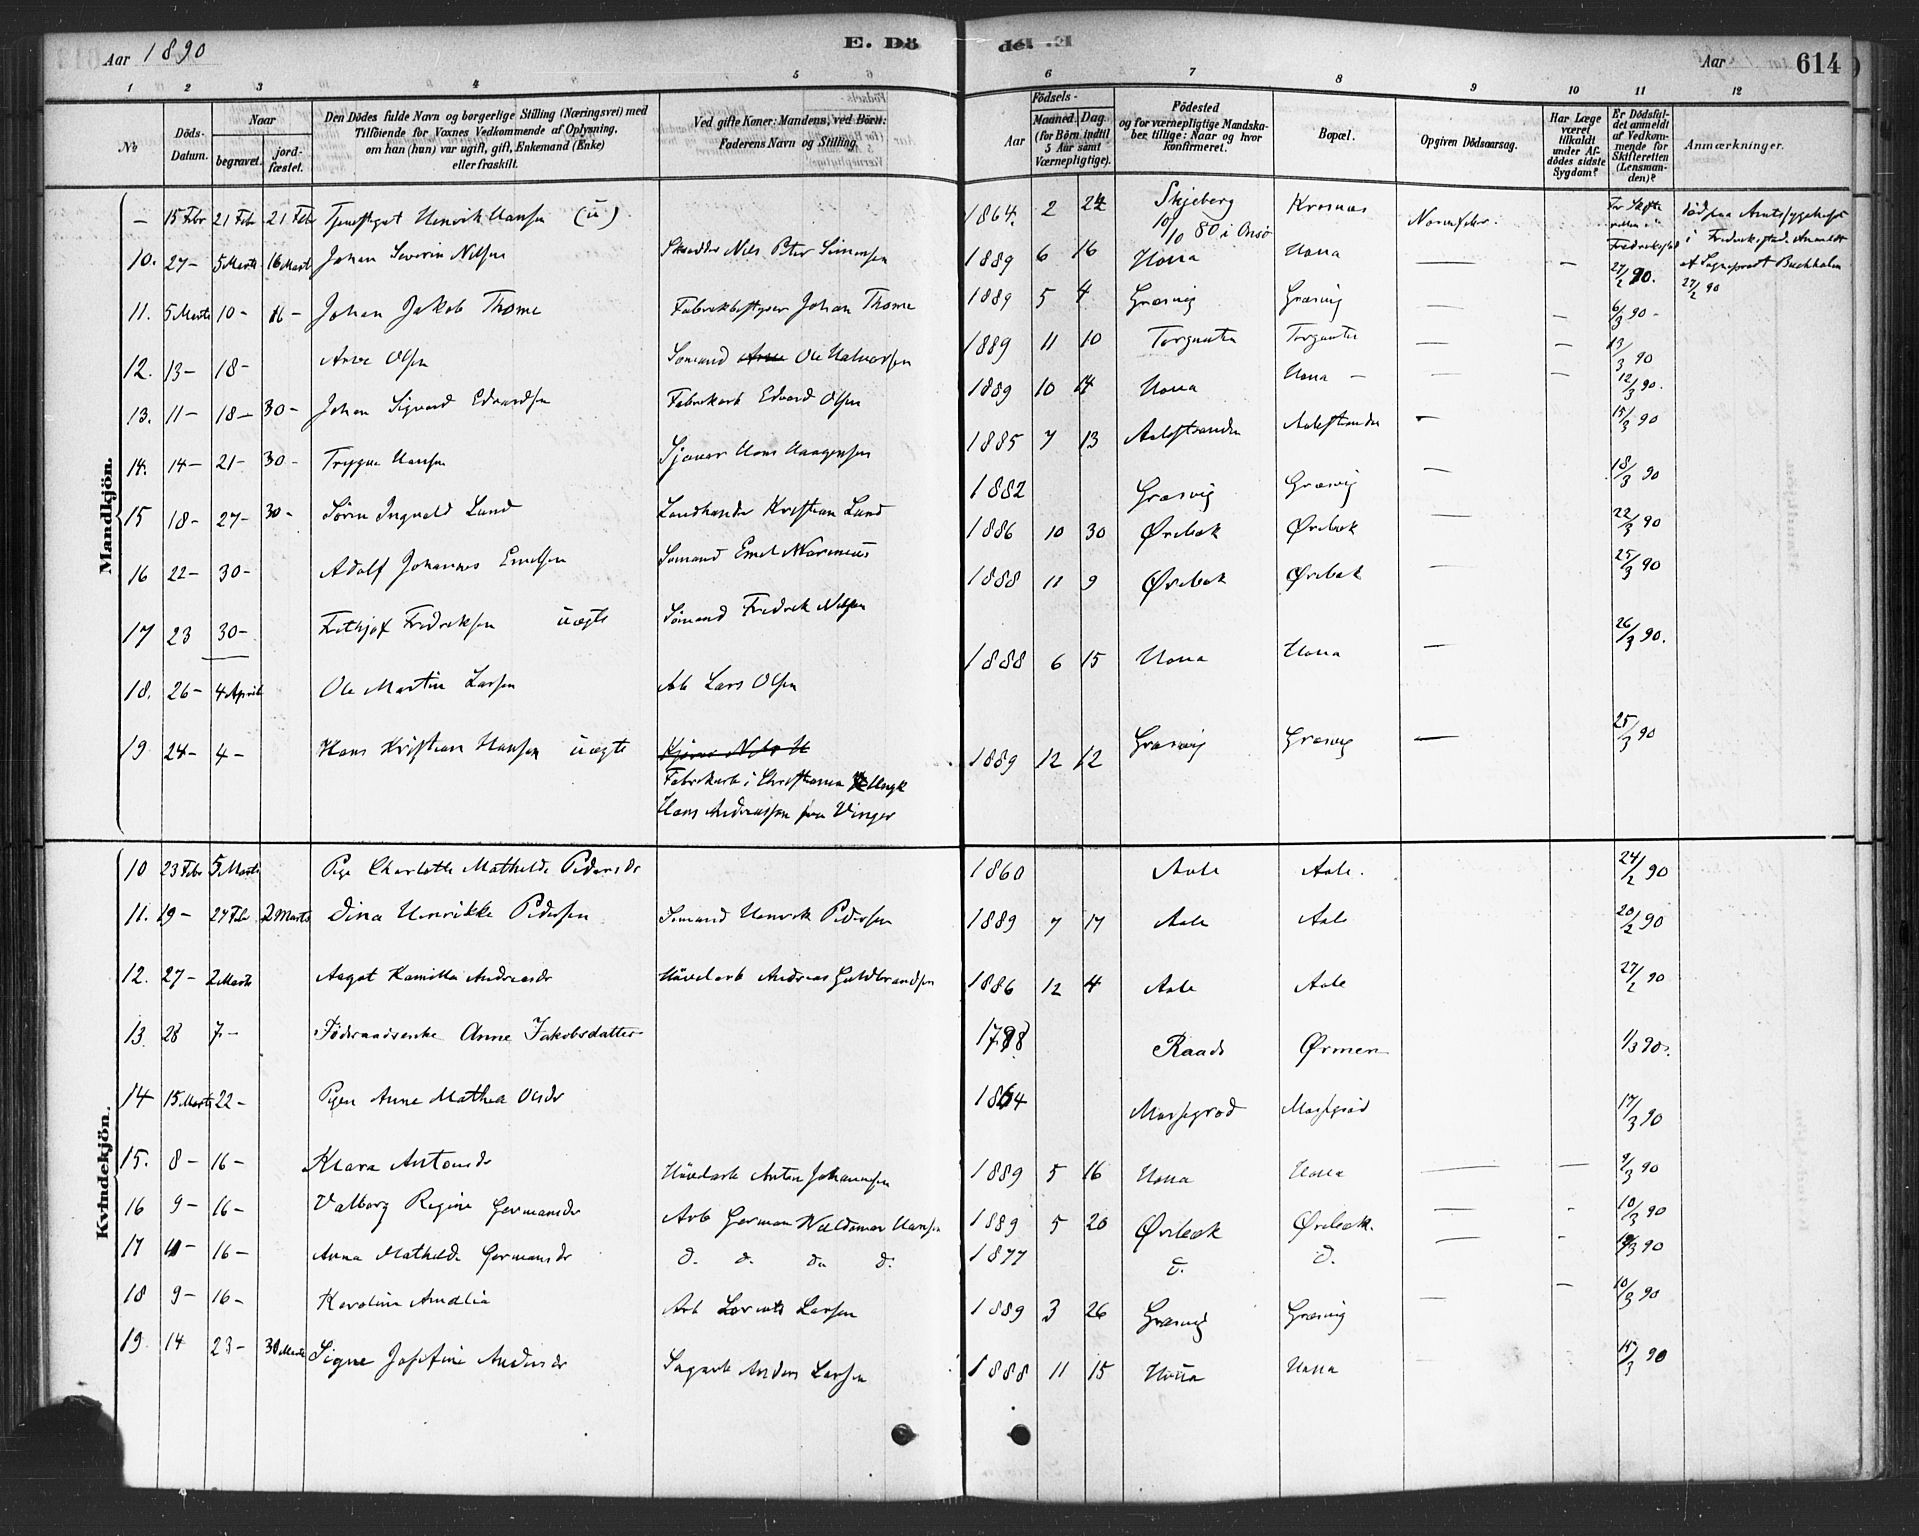 Aar 1890 E. Dö de. Aar 614
1 2 3 4 5 6 7 8 9 10 11 12
No
Döds-Datum.
Naar
begravet.
jord-fæstet.
Den Dödes fulde Navn og borgerlige Stilling (Næringsvei) med
Tilföiende for Voxnes Vedkommende af Oplysning,
om han (hun) var ugift, gift, Enkemand (Enke)
eller fraskilt.
Ved gifte Koner: Mandens, ved Börn:
Faderens Navn og Stilling.
Födsels-
Aar
Maaned. Dag.
(for Börn indtil
5 Aar samt
Værnepligtige).
Födested
og for værnepligtige Mandska-
ber tillige: Naar og hvor
konfirmeret.
Bopæl.
Opgiven Dödsaarsag.
Har Læge
været
tilkaldt
under Af-
dödes sidste
Sygdom?
Er Dödsfal-
det anmeldt
af Vedkom-
mende for
Skifteretten
(Lensman-
den)?
Anmærkninger.
Mandkjön.
— 15 Febr 21 Febr 21 Febr Henrik Hansen (u) 1864. 2 24 Skjeberg 10/10 80 i Onsö
10. 27 — 5 Marts 16 Marts Johan Severin Nilsen Skrædder Nils Peter Simensen 1889 6 16 Houa Houa — — 27/2 90.
i Fredrikstad. Anmeldt
af Sogneprest Buchholm
27/2 90
11. 5 Marts 10 — 16 — Johan Jakob Thome Fabrikbestyrer Johan Thome 1889 5 4 Græsvig Græsvig — — 6/3 90 —
12. 13 — 18 — Arne Olsen Sömand Ole Halvorsen 1889 11 10 Torgauten Torgauten — — 13/3 90
13. 11 — 18 — 30 — Johan Sigvard Edvardsen Fabrikarb Edvard Olsen 1889 10 14 Houa Houa — — — 12/3 90.
14. 14 — 21 — 30 — Trygve Hansen Sjouer Hans Haagensen 1885 7 13 Aalestranden Aalestranden — 15/3 90
15 18 — 27 — 30 — Sören Ingvald Lund Landhandler Kristian Lund 1882 Græsvig Græsvig — 18/3 90
16 22 — 30 — Adolf Johannes Emelsen Sömand Emel Marenius 1886 10 30 Örebæk Örebæk — 22/3 90
17 23 30 — Frithjof Fredriksen uægte Sömand Fredrik Nilsen 1888 11 9 Örebæk Örebæk — 25/3 90
18. 26 — 4 April Ole Martin Larsen Arb Lars Olsen 1888 6 15 Houa Houa — 26/3 90.
19 24 — 4 — Hans Kristian Hansen uægte 1889 12 12 Græsvig Græsvig — 25/3 90
Fabrikarb i Christiania Ungk
Hans Andreassen fra Vinger
Kvindekjön.
10 23 Febr 5 Marts Pige Charlotte Mathilde Pedersdr 1860 Aale Aale. 24/2 90
11. 19 — 27 Febr 2 Marts Dina Henrikke Pedersen Sömand Henrik Pedersen 1889 7 17 Aale Aale 20/2 90
12. 27 — 2 Marts Aagot Kamilla Andreasdr Hövelarb Andreas Guldbrandsen 1886 12 4 Aale Aale 27/2 90
13. 28 7 — Föderaadsenke Anne Jakobsdatter 1798 Raade Örmen 1/3 90.
14 15 Marts 22 — Pigen Anne Mathea Olsdr 1864 Mosserød Mosserød 17/3 90
15. 8 — 16 — Klara Antonsdr Hövelarb Anton Johannesen 1889 5 16 Houa Houa — — 9/3 90
16 9 — 16 — Valborg Regine Germansdr Arb German Waldemar Hansen 1889 5 20 Örebæk Örebæk. — - 10/3 90
17 11 — 16 — Anna Mathilde Germansdr d. d. do d. 1877 d. d. — - 3 90
18 9 — 16 — Karoline Amalia Arb Lorents Larsen 1889 3 26 Græsvig Græsvig — — 10/3 90
19. 14 23 — 30 Marts Signe Josefine Andersdr Sagarb Anders Larsen 1888 11 15 Houa Houa 15/3 90